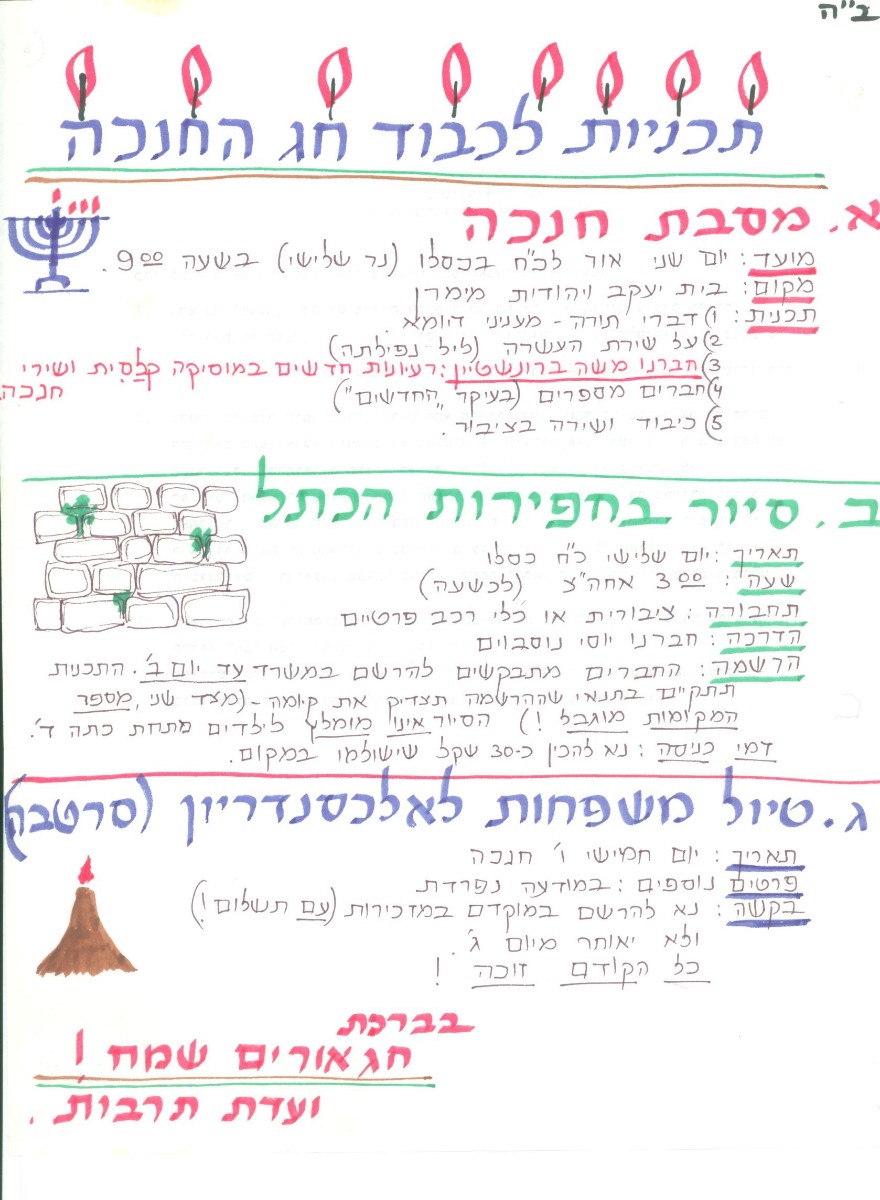 ב"ה
תכניות לכבוד חג החנכה
א. מסבת חנכה
מועד: יום שני אור לכ"ח בכסלו (נר שלישי) בשעה 9:00.
מקום: בית יעקב ויהודית מימרן
תכנית: 1) דברי תורה - מעניני דיומא.
2) על שירת העשרה (ליל נפילתה)
3) חברנו משה ברונשטיין: רעיונות חדשים במוסיקה קלסית ושירי
חנכה
4) חברים מספרים (בעיקר "החדשים")
5) כיבוד ושירה בציבור.
ב. סיור בחפירות הכתל
תאריך: יום שלישי כ"ח כסלו
שעה: 3:00 אחה"צ (לכשעה)
תחבורה: ציבורית או כלי רכב פרטיים
הדרכה: חברנו יוסי נוסבוים
הרשמה: החברים מתבקשים להרשם במשרד עד יום ב'. התכנית
תתקיים בתנאי שההרשמה תצדיק את קיומה - (מצד שני, מספר
המקומות מוגבל!) הסיור אינו מומלץ לילדים מתחת כתה ד'.
דמי כניסה: נא להכין כ-30 שקל שישולמו במקום.
ג. טיול משפחות לאלכסנדריון (סרטבה)
תאריך: יום חמישי ו' חנכה
פרטים נוספים: במודעה נפרדת
בקשה: נא להרשם במוקדם במזכירות (עם תשלום!)
ולא יאוחר מיום ג'.
כל הקודם זוכה!
בברכת
חג אורים שמח!
ועדת תרבות.